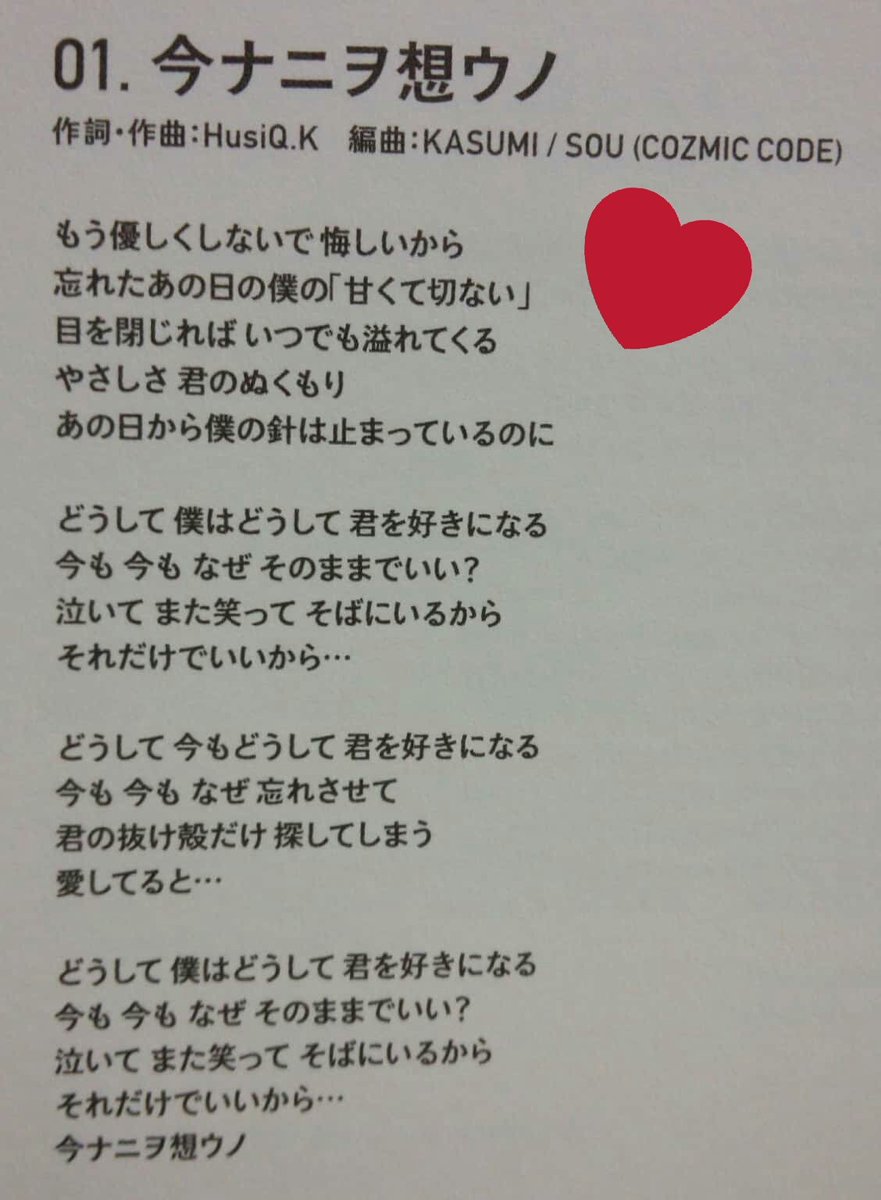 01. 今ナニヲ想ウノ
作詞・作曲：HusiQ.K 編曲：KASUMI / SOU (COZMIC CODE)
もう優しくしないで 悔しいから
忘れたあの日の僕の「甘くて切ない」
目を閉じれば いつでも溢れてくる
やさしさ 君のぬくもり
あの日から僕の針は止まっているのに
どうして 僕はどうして 君を好きになる
今も 今も なぜ そのままでいい？
泣いて また笑って そばにいるから
それだけでいいから…
どうして 今もどうして 君を好きになる
今も 今も なぜ 忘れさせて
君の抜け殻だけ 探してしまう
愛してると…
どうして 僕はどうして 君を好きになる
今も 今も なぜ そのままでいい？
泣いて また笑って そばにいるから
それだけでいいから…
今ナニヲ想ウノ